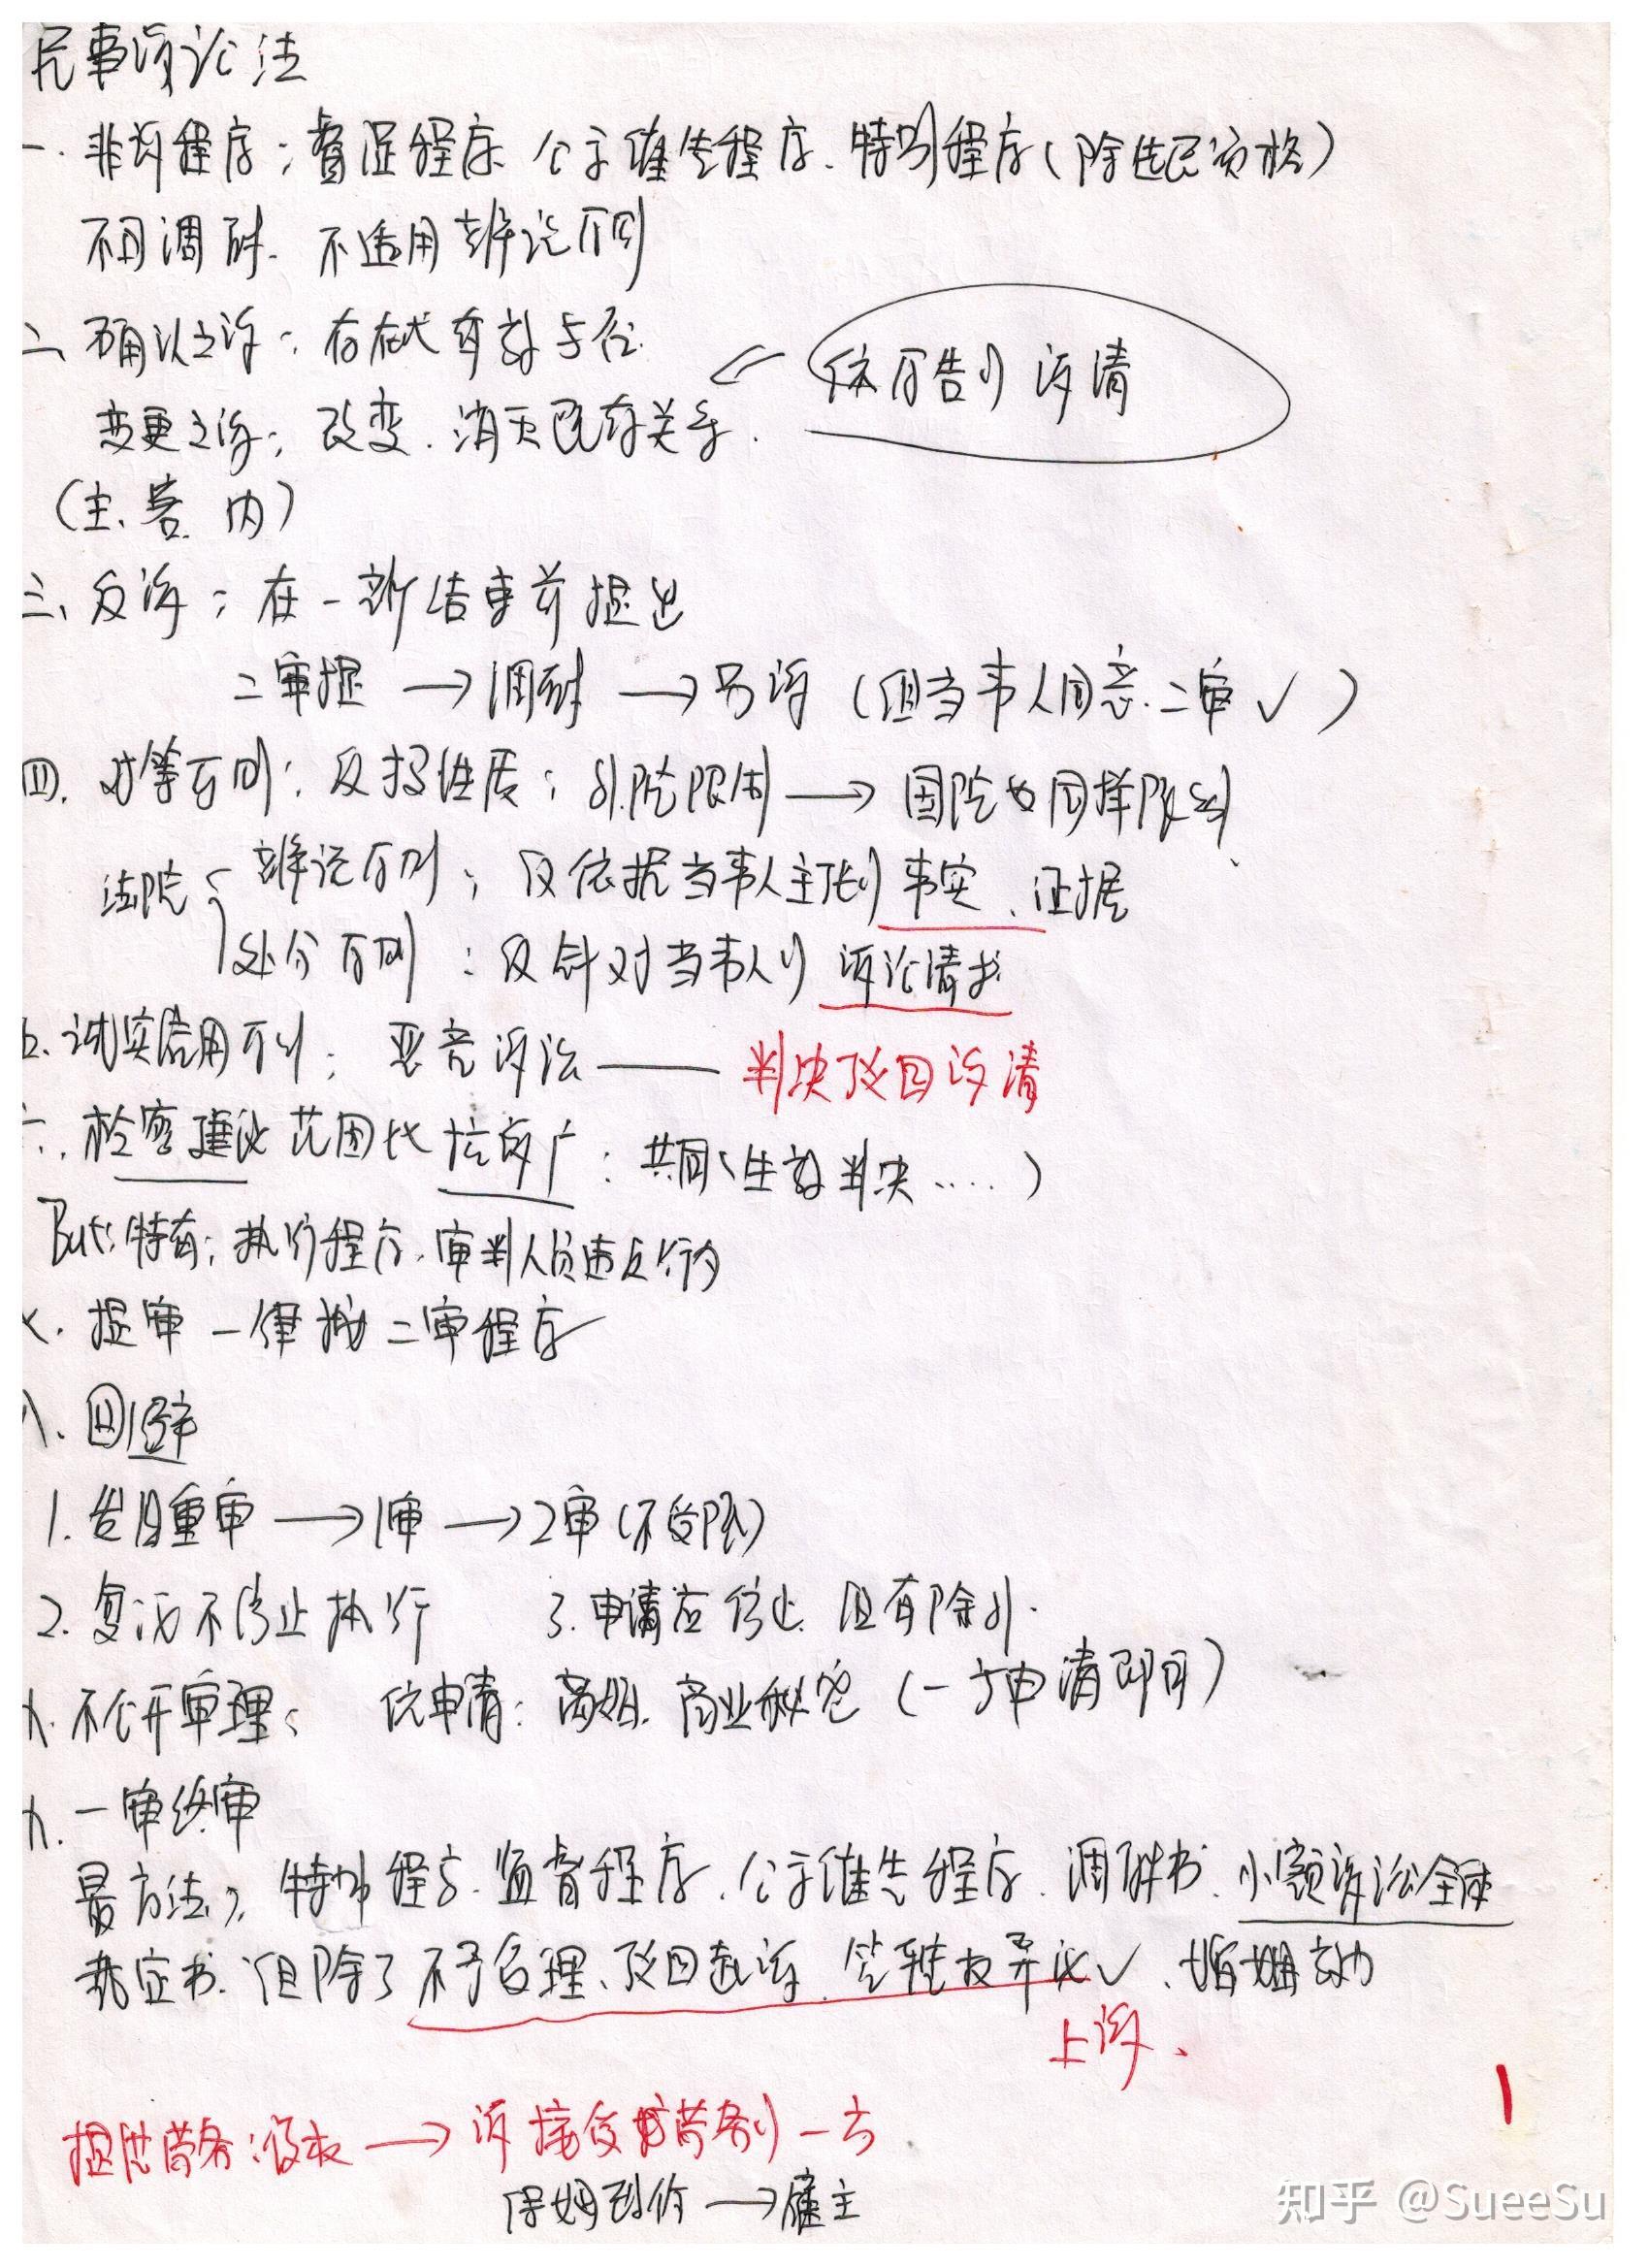 民事诉讼法
一. 非诉程序：督促程序 公示催告程序、特别程序（除选民资格）
不可调解. 不适用辩论原则
二、确认之诉：存在或有效与否.
依原告的诉请
变更之诉：改变. 消灭既有关系.
（主、客. 内）
三、反诉：在一辩结束前提出
二审提 → 调解 → 另诉（但当事人同意.二审✓）
四. 对等原则：反报性质：外院限制 → 国院也同样限制.
法院 辩论原则：仅依据当事人主张的事实、证据
处分原则：仅针对当事人的诉讼请求
五. 诚实信用原则：恶意诉讼 —— 判决驳回诉请
六. 检察建议范围比抗诉广：共同（生效判决....）
But：特有：执行程序. 审判人员违反行为
七. 提审一律按二审程序
八. 回避
1. 发回重审 → 1审 → 2审（不受限）
2. 复议不停止执行 3. 申请应停止 但有除外.
九. 不公开审理： 依申请：离婚. 商业秘密（一方申请即可）
十. 一审终审
最高法、特别程序. 监督程序. 公示催告程序. 调解书. 小额诉讼全体
裁定书. 但除了不予受理、驳回起诉. 管辖权异议✓、婚姻效力
上诉、
1
提供劳务：侵权 → 诉接受劳务的一方
保姆到你 → 雇主
知乎 @SueeSu